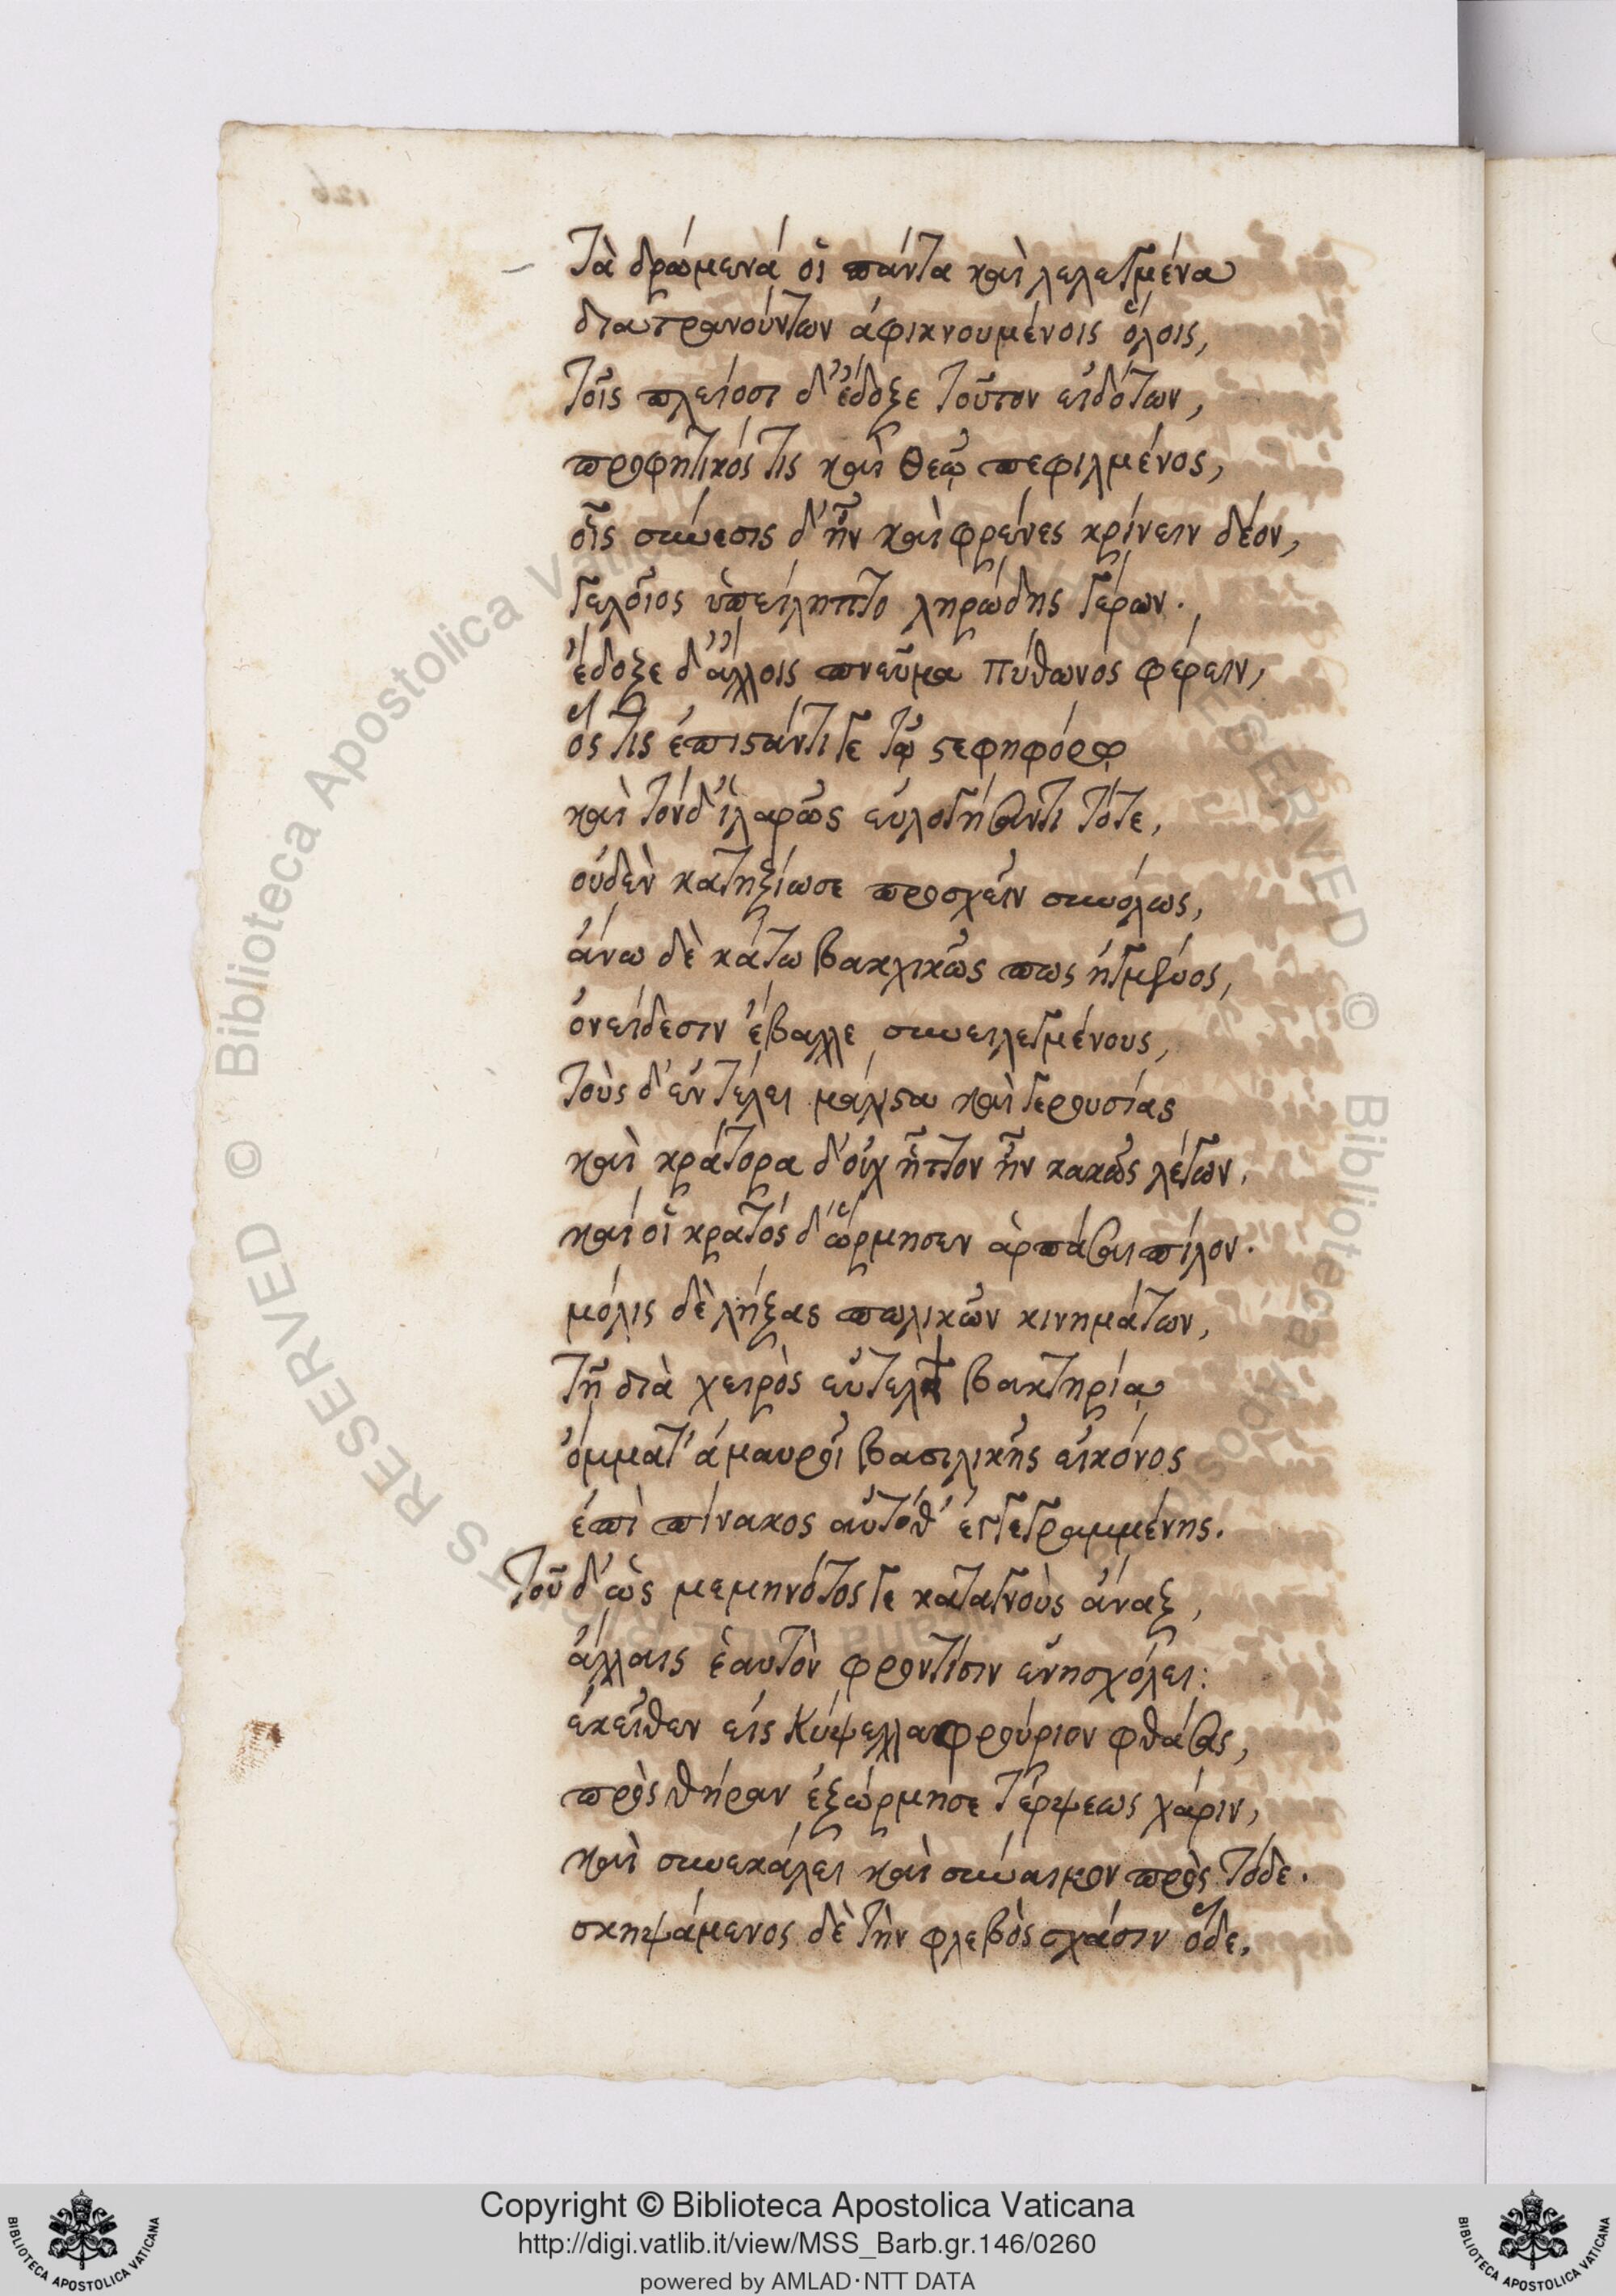 Τὰ δρώμενά οἱ πάντα καὶ λελεγμένα
διατρανούντων ἀφικνουμένοις ὅλοις,
Τοῖς πλείοσι δ' ἔδοξε τοῦτον εἰδότων,
προφητικός τις καὶ Θεῷ πεφιλμένος,
οἷς σύνεσις δ' ἦν καὶ φρένες κρίνειν δέον,
γελοῖος ὑπείληπτο ληρώδης γέρων.
ἔδοξε δ' ἄλλοις πνεῦμα Πύθωνος φέρειν,
ὅς τις ἐπιστάντι γε τῷ στεφηφόρῳ
καὶ τόνδ' ἱλαρῶς εὐλογήσαντι τότε,
οὐδὲν κατηξίωσε προσχεῖν συνόλως,
ἄνω δὲ κάτω βακχικῶς πως ἠγμένος,
ὀνείδεσιν ἔβαλλε συνειλεγμένους,
τοὺς δ' ἐν τέλει μάλιστα καὶ γερουσίας
καὶ κράτορα δ' οὐχ ἧττον ἦν κακῶς λέγων.
καί οἱ κρατός δ' ὥρμησεν ἁρπάσαι πῖλον.
μόλις δὲ λήξας πωλικῶν κινημάτων,
τῇ διὰ χειρὸς εὐτελεῖ βακτηρίᾳ
ὄμματ' ἀμαυροῖ βασιλικῆς εἰκόνος
ἐπὶ πίνακος αὐτόθ' ἐγγεγραμμένης.
Τοῦ δ' ὡς μεμηνότος γε καταγνοὺς ἄναξ,
ἄλλαις ἑαυτὸν φροντίσιν ἐνησχόλει:
ἐκεῖθεν εἰς Κύψελλα φρούριον φθάσας,
πρὸς θήραν ἐξώρμησε τέρψεως χάριν,
καὶ συνεκάλει καὶ σύναιμον πρὸς τόδε.
σκηψάμενος δὲ τὴν φλεβὸς σχάσιν ὅδε,
Copyright © Biblioteca Apostolica Vaticana
http://digi.vatlib.it/view/MSS_Barb.gr.146/0260
powered by AMLAD·NTT DATA